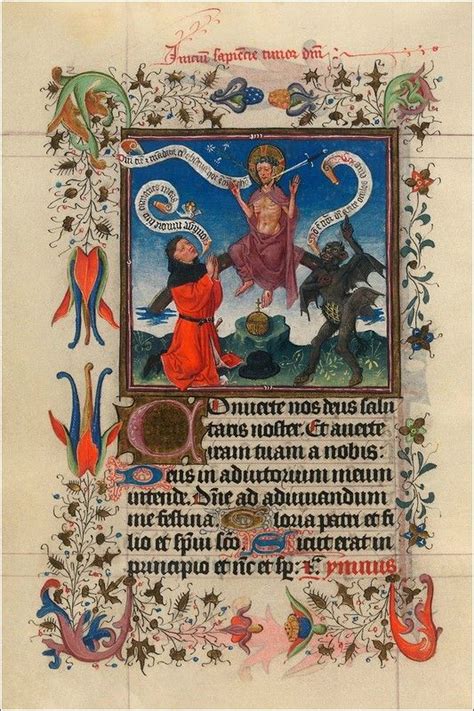 Inicium sapiencie timor dni
Conuerte nos deus salu
taris noster. Et auerte
iram tuam a nobis:
Deus in adiutorium meum
intende. Dne ad adiuuandum
me festina. Gloria patri et fi
lio et spui sco Sicut erat in
principio et nc et sp: Ymnus